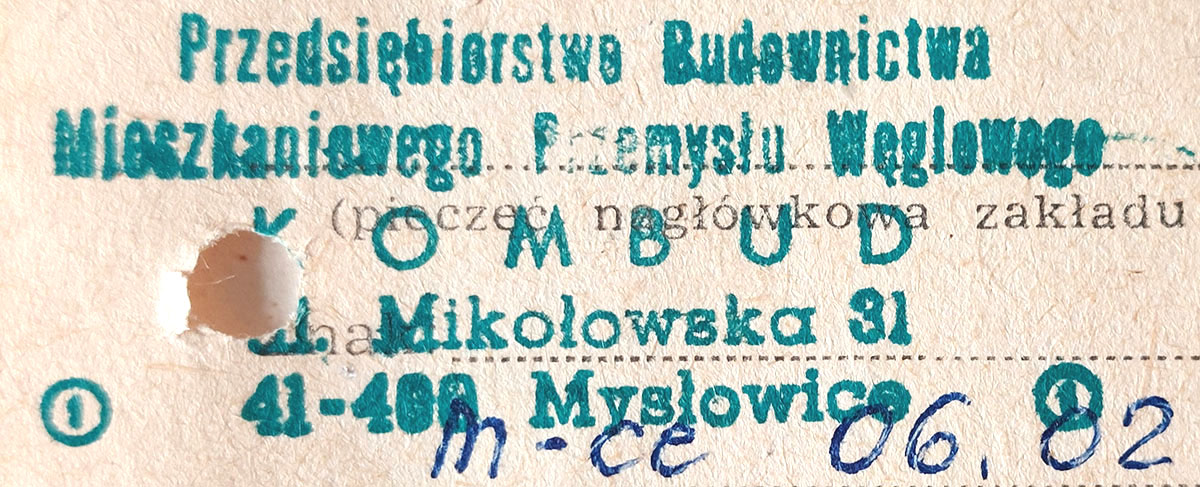 Przedsiębiorstwo Budownictwa
Mieszkaniowego Przemysłu Węglowego
(pieczęć nagłówkowa zakładu
K O M B U D
ul. Mikołowska 31
1 41-400 Mysłowice 1
m-ce 06. 02